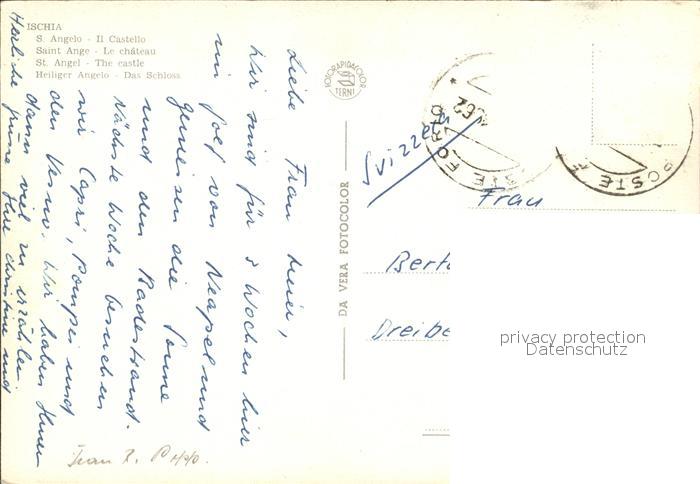 ISCHIA
S. Angelo - Il Castello
Saint Ange - Le château
St. Angel - The castle
Heiliger Angelo - Das Schloss
Liebe Frau Meier,
Wir sind für 3 Wochen hier
im Golf von Neapel und
geniessen die Sonne
und den Badestrand.
Nächste Woche besuchen
wir Capri, Pompei und
den Vesuv. Wir haben Ihnen
dann viel zu erzählen.
Herzliche Grüsse Ihre Christine und
FOTORAPIDACOLOR
TERNI
DA VERA FOTOCOLOR
Svizzera
62
POSTE
Frau
Berta
Dreibe
privacy protection
Datenschutz